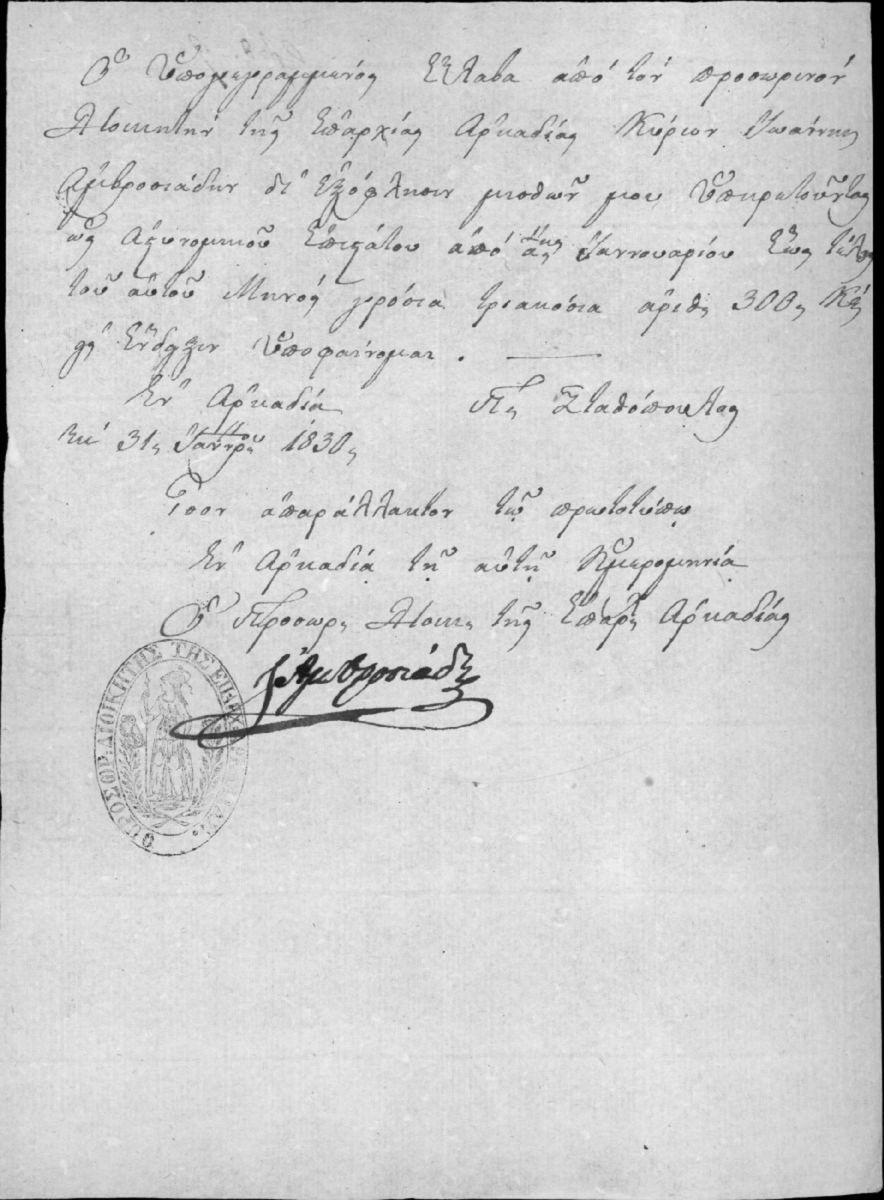 Ὁ Ὑπογεγραμμένος ἔλαβα ἀπὸ τὸν προσωρινὸν
Διοικητὴν τῆς ἐπαρχίας Ἀρκαδίας Κύριον Ἰωάννην
Ἀμβροσιάδην δι' ἐξόφλησιν μισθῶν μου
ὡς Ἀστυνομικοῦ ἀπὸ αῃς Ἰαννουαρίου ἕως τέλος
τοῦ αὐτοῦ Μηνός γρόσια τριακόσια ἀριθ. 300, Κὲ
εἰς ἔνδειξιν ὑποφαίνομαι . —
Ἐν Ἀρκαδίᾳ Π. Σταθόπουλος
τῇ 31, Ἰαννρ. 1830,
Ἴσον ἀπαράλλακτον τῷ πρωτοτύπῳ
Ἐν Ἀρκαδίᾳ τῇ αὐτῇ Ἡμερομηνίᾳ
Ὁ Προσωρ. Διοικ. τῆς Ἐπαρ. Ἀρκαδίας
Ι Ἀμβροσιάδης
Ο ΠΡΟΣΩΡ: ΔΙΟΙΚΗΤΗΣ ΤΗΣ ΕΠΑΡΧ.